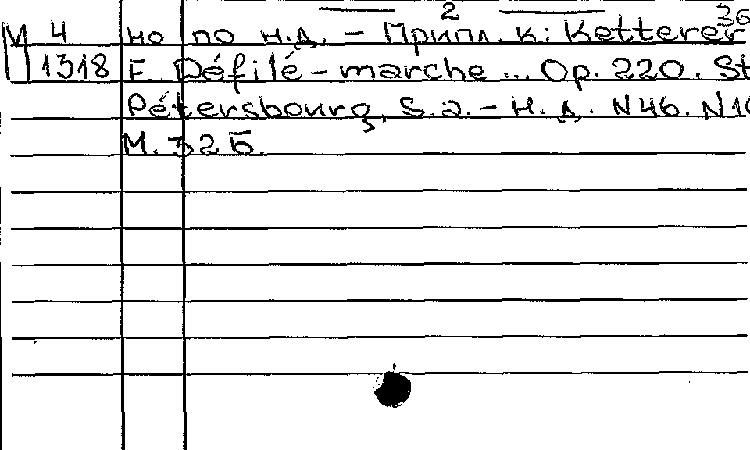 2
36
М 4 но по н.д. – Припл. к: Ketterer
1318 E. Défilé – marche ... Op. 220. St
Pétersbourg, s.a. – н.д. N46. N10
М. 32Б.